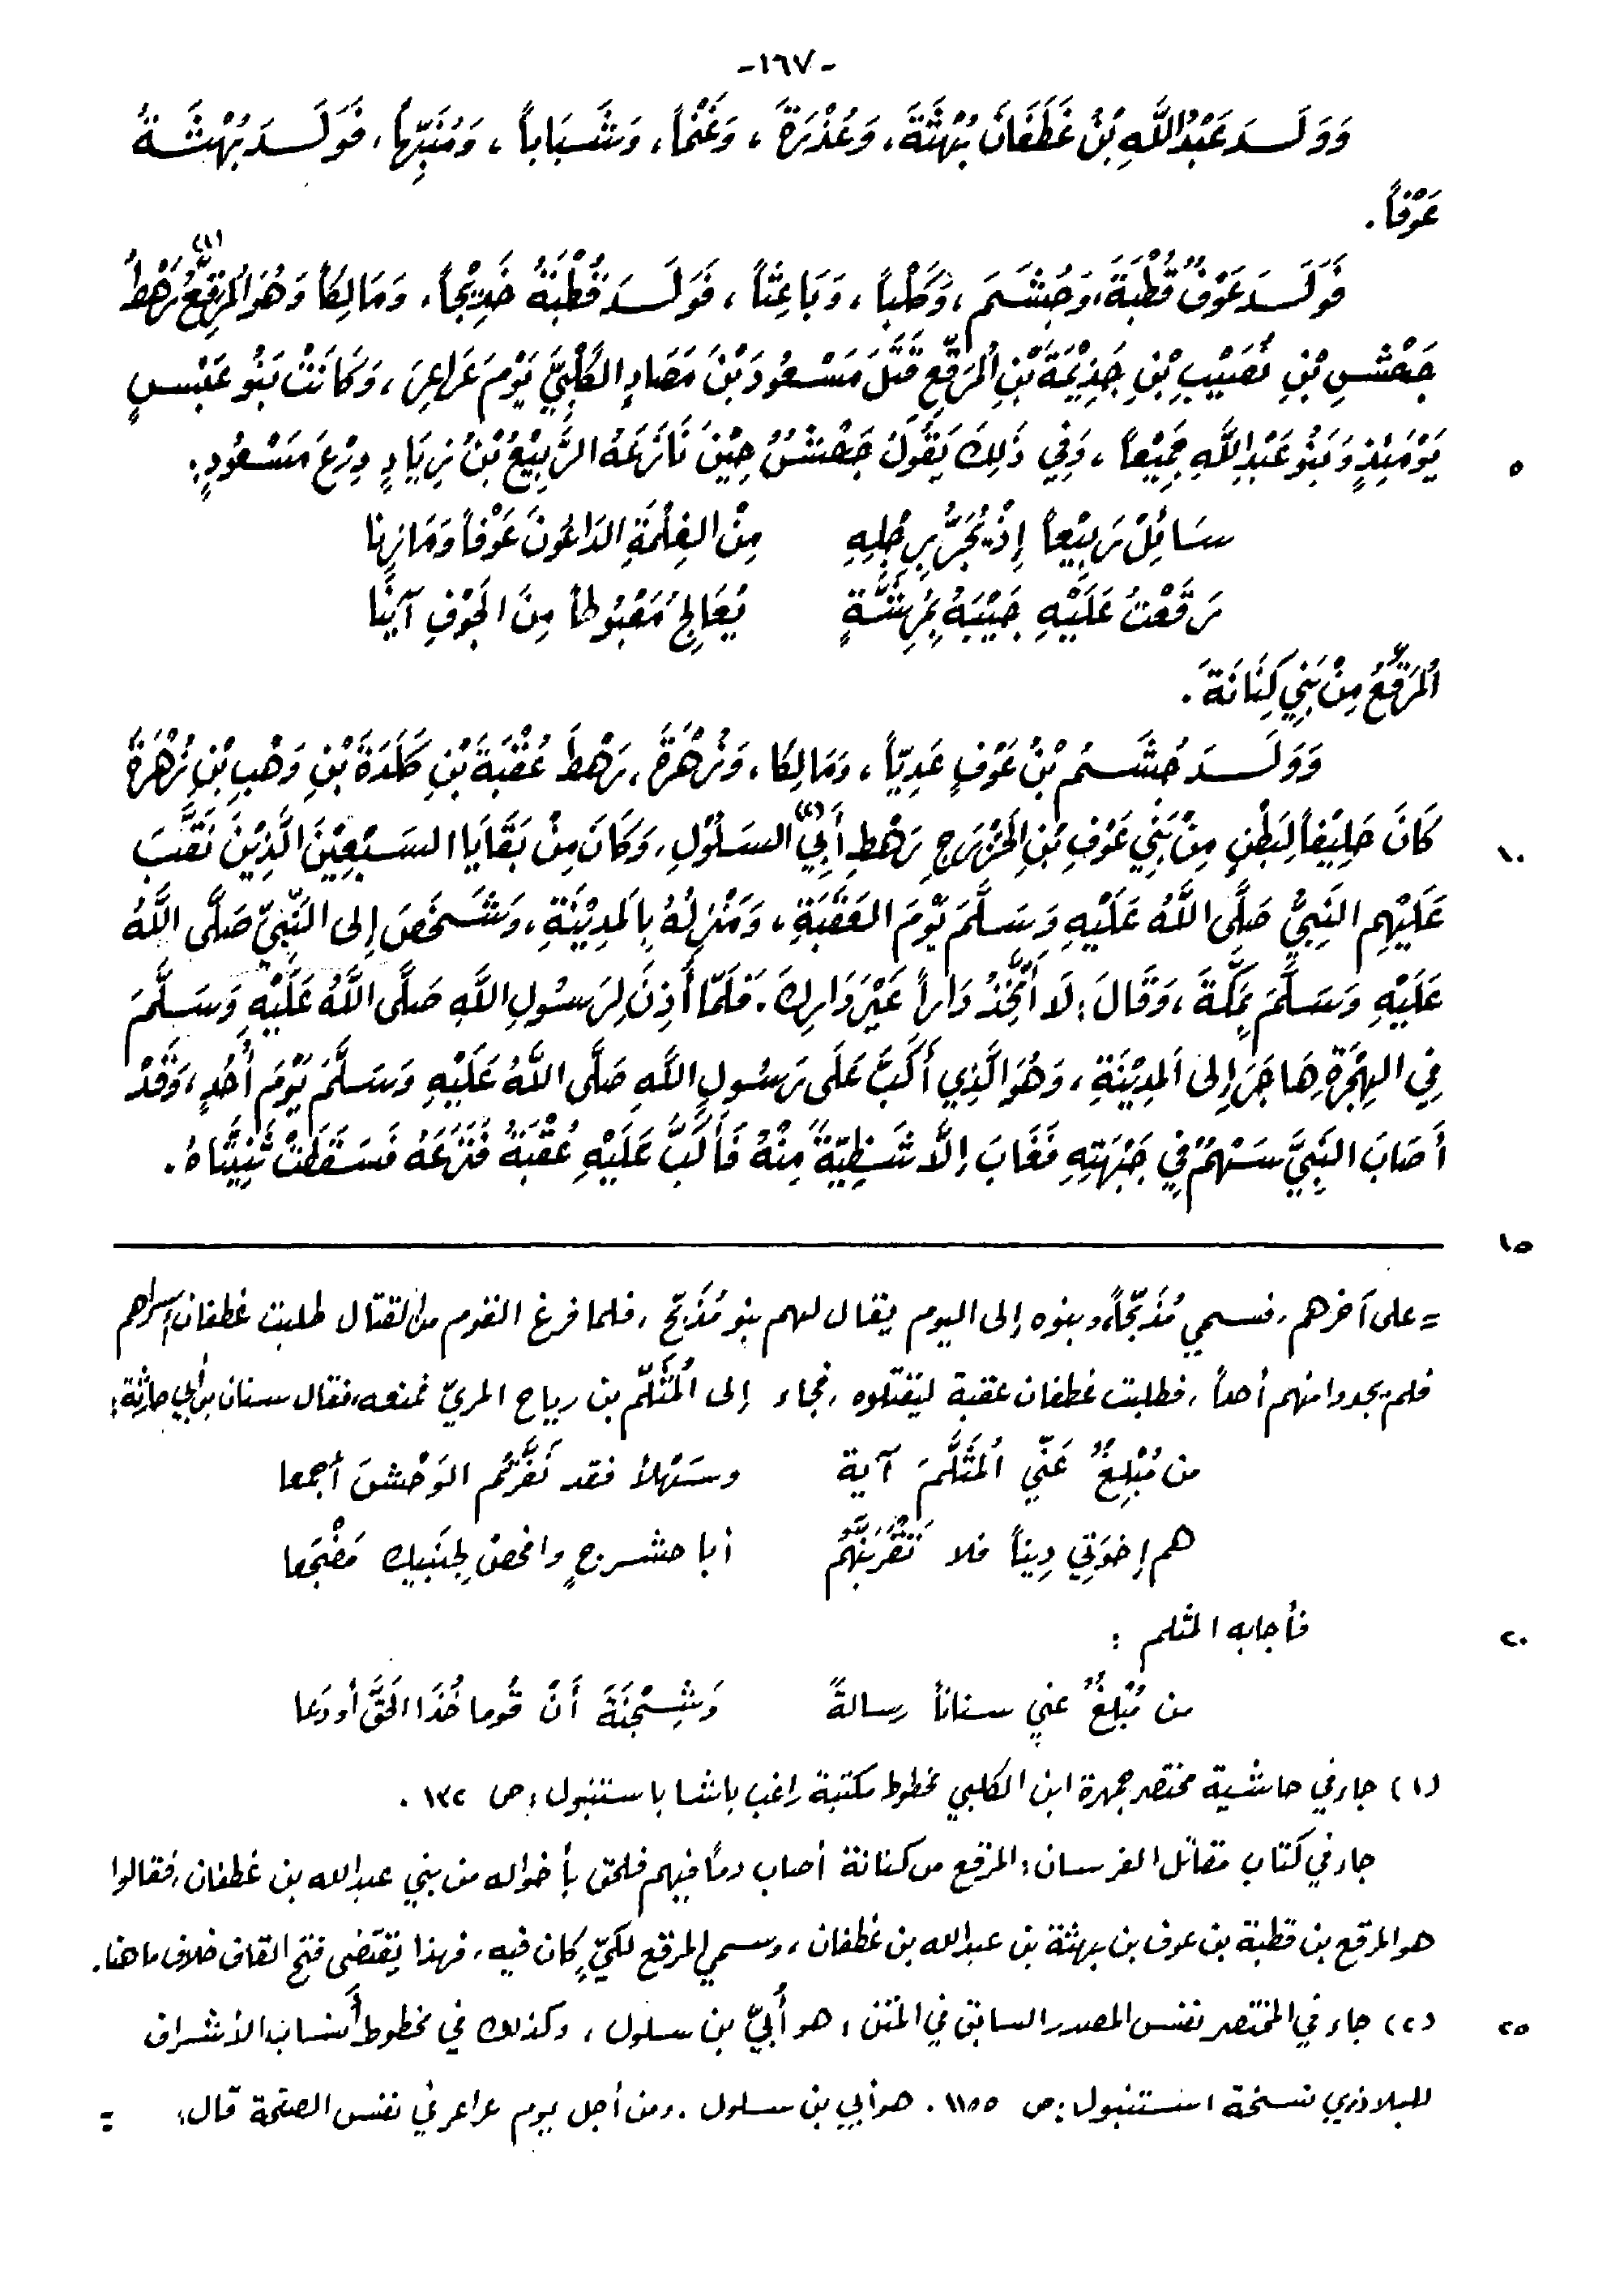 -١٦٧-
وَوَلَدَ عَبْدُ اللَّهِ بْنُ غَطَفَانَ بُهْثَةَ، وَعُذْرَةَ، وَغَنْماً، وَشَبَاباً، وَمُنَبِّهاً، فَوَلَدَ بُهْثَةُ
عَوْفاً.
فَوَلَدَ عَوْفٌ قُطْبَةَ، وَجُشَمَ، وَكَلْباً، وَبَاعِثاً، فَوَلَدَ قُطْبَةُ خَدِيْجاً، وَمَالِكاً وَهُوَ المُرَقِّعُ (١) رَهْطُ
جَحْشِ بْنِ نُصَيْبِ بْنِ جَذِيْمَةَ بْنِ المُرَقِّعِ قَتَلَ مَسْعُودَ بْنَ مَصَادٍ الكَلْبِيَّ يَوْمَ عَرَاعِرَ، وَكَانَتْ بَنُو عَبْسٍ
يَوْمَئِذٍ وَبَنُو عَبْدِ اللَّهِ جَمِيْعاً، وَفِي ذَلِكَ يَقُولُ جَحْشٌ حِيْنَ نَازَعَهُ الرَّبِيْعُ بْنُ زِيَادٍ دِرْعَ مَسْعُودٍ: ٥
سَائِلْ رَبِيْعاً إِذْ يُجَرُّ بِرِجْلِهِ مِنَ الغِلْمَةِ الدَاعُونَ عَوْفاً وَمَازِنا
رَقَّعْتُ عَلَيْهِ جَيْبَهُ بِمُرِشَّةٍ يُعَالِجُ مَعْبُوطاً مِنَ الجَوْفِ آيِنا
المُرَقَّعُ مِنْ بَنِي كِنَانَةَ.
وَوَلَدَ جُشَمُ بْنُ عَوْفٍ عَدِيّاً، وَمَالِكا، وَزُهْرَةَ، رَهْطَ عُقْبَةَ بْنِ كَلَدَةَ بْنِ وَهْبِ بْنِ زُهْرَةَ
كَانَ حَلِيْفاً لِبَطْنٍ مِنْ بَنِي عَوْفِ بْنِ الخَزْرَجِ رَهْطِ أَبِي (٢) السَلُوْلِ، وَكَانَ مِنْ بَقَايَا السَبْعِيْنَ الَّذِيْنَ نَقَّبَ ١٠
عَلَيْهِم النَبِيُّ صَلَّى اللَّهُ عَلَيْهِ وَسَلَّمَ يَوْمَ العَقَبَةِ، وَمَنْزِلُهُ بِالمَدِيْنَةِ، وَشَخَصَ إِلى النَبِيّ صَلَّى اللَّهُ
عَلَيْهِ وَسَلَّمَ بِمَكَّةَ، وَقَالَ: لَا أَتَّخِذُ دَاراً غَيْرَ دَارِكَ. فَلَمّا أُذِنَ لِرَسُولِ اللَّهِ صَلَّى اللَّهُ عَلَيْهِ وَسَلَّمَ
فِي الهِجْرَةِ هَاجَرَ إِلى المَدِيْنَةِ، وَهُوَ الَّذِي أَكَبَّ عَلَى رَسُولِ اللَّهِ صَلَّى اللَّهُ عَلَيْهِ وَسَلَّمَ يَوْمَ أُحُدٍ، وَقَدْ
أَصَابَ النَبِيَّ سَهْمٌ فِي جَبْهَتِهِ فَغَابَ إِلَّا شَظِيّةً مِنْهُ فَأَكَبَّ عَلَيْهِ عُقْبَةُ فَنَزَعَهُ فَسَقَطَتْ ثَنِيَّتَاهُ.
١٥
= على آخرهم، فسمي مُذَبِّحاً، وبنوه إلى اليوم يقال لهم بنو مُذَبِّح، فلما فرغ القوم من القتال طلبت غطفان أسراهم
فلم يجدوا منهم أحداً، فطلبت غطفان عقبة ليقتلوه، فجاء إلى المُثَلَّم بن رياح المريّ فمنعه، فقال سنان بن أبي حارثة:
من مُبْلِغٌ عَنّي المُثَلَّمَ آية وسَهْلاً فقد نَفَّرْتُم الوَحْشَ أجمعا
هم إخوَتِي دِيناً فلا تَقْرَبَنَّهُم أبا حشرجٍ وافحصْ لِجَنبيك مَضْجَعا
فأجابه المثلم: ٢٠
من مُبْلِغٌ عني سناناً رسالةً وَشِجْنَةَ أَنْ قُوما خُذَا الحَقَّ أو دَعا
(١) جاء في حاشية مختصر جمهرة ابن الكلبي مخطوط مكتبة راغب باشا باستنبول: ص ١٣٢.
جاء في كتاب مقاتل الفرسان: المرقع من كنانة أصاب دماً فيهم فلحق بأخواله من بني عبد الله بن غطفان، فقالوا
هو المرقع بن قطبة بن عوف بن بهثة بن عبد الله بن غطفان، وسمي المرقع لكيّ كان فيه، فهذا يقتضى فتح القاف خلاف ما هنا.
(٢) جاء في المختصر نفس المصدر السابق في المتن، هو أُبَيّ بن سلول، وكذلك في مخطوط أنساب الأشراف ٢٥
للبلاذري نسخة استنبول: ص ١١٥٥. هو أبي بن سلول. ومن أجل يوم عراعر في نفس الصفحة قال: =